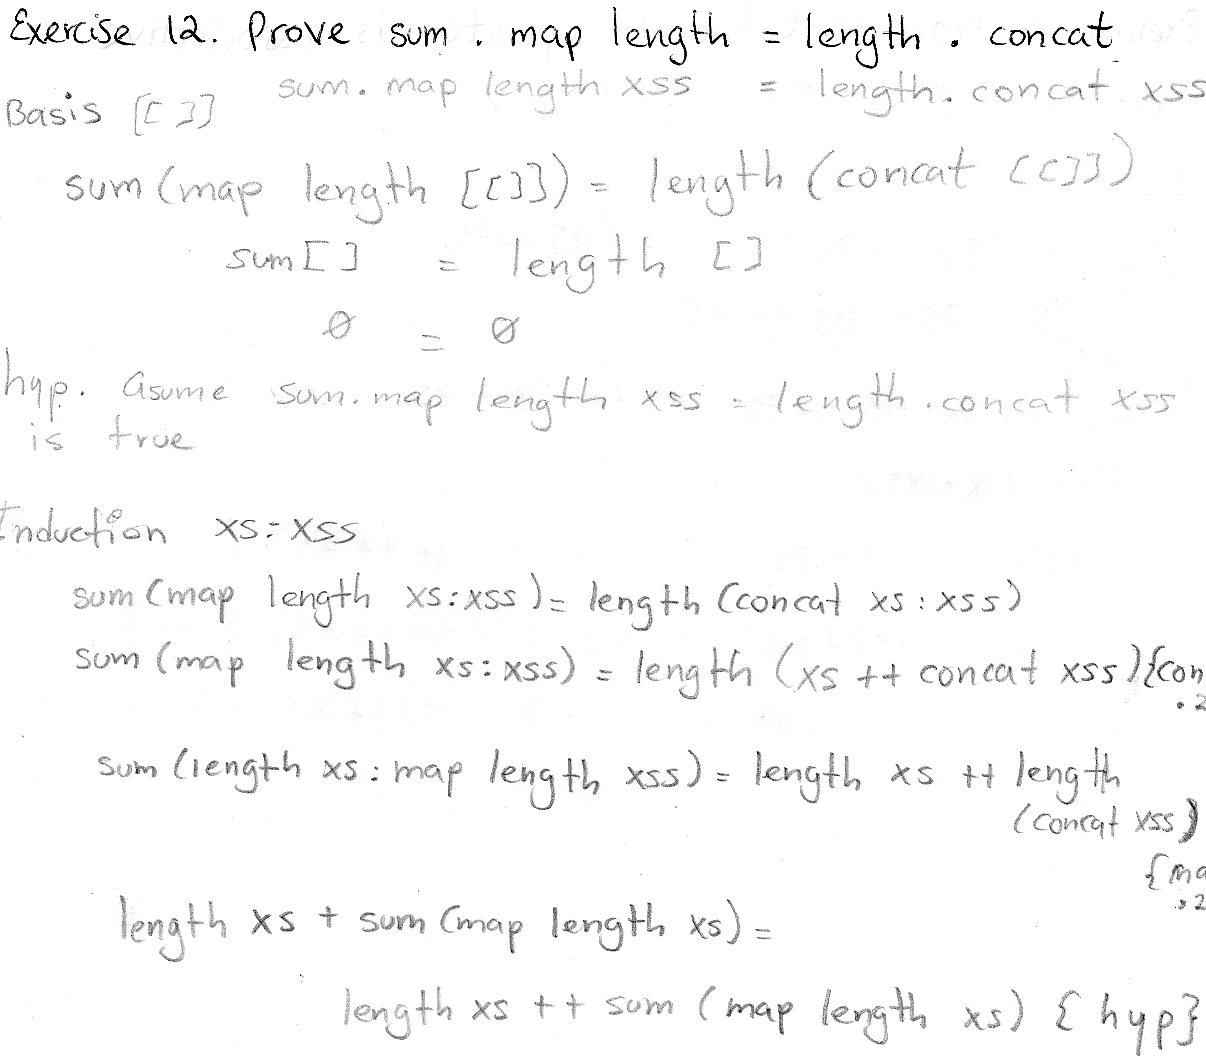 Exercise 12. Prove sum . map length = length . concat
sum. map length xss = length. concat xss
Basis [[]]
sum (map length [[]]) = length (concat [[]])
sum [] = length []
0 = 0
hyp. Asume sum. map length xss = length .concat xss
is true
Induction xs: xss
sum (map length xs:xss) = length (concat xs : xss)
sum (map length xs:xss) = length (xs ++ concat xss) {con
.2
sum (length xs : map length xss) = length xs ++ length
(concat xss)
{ma
.2
length xs + sum (map length xs) =
length xs ++ sum (map length xs) {hyp}